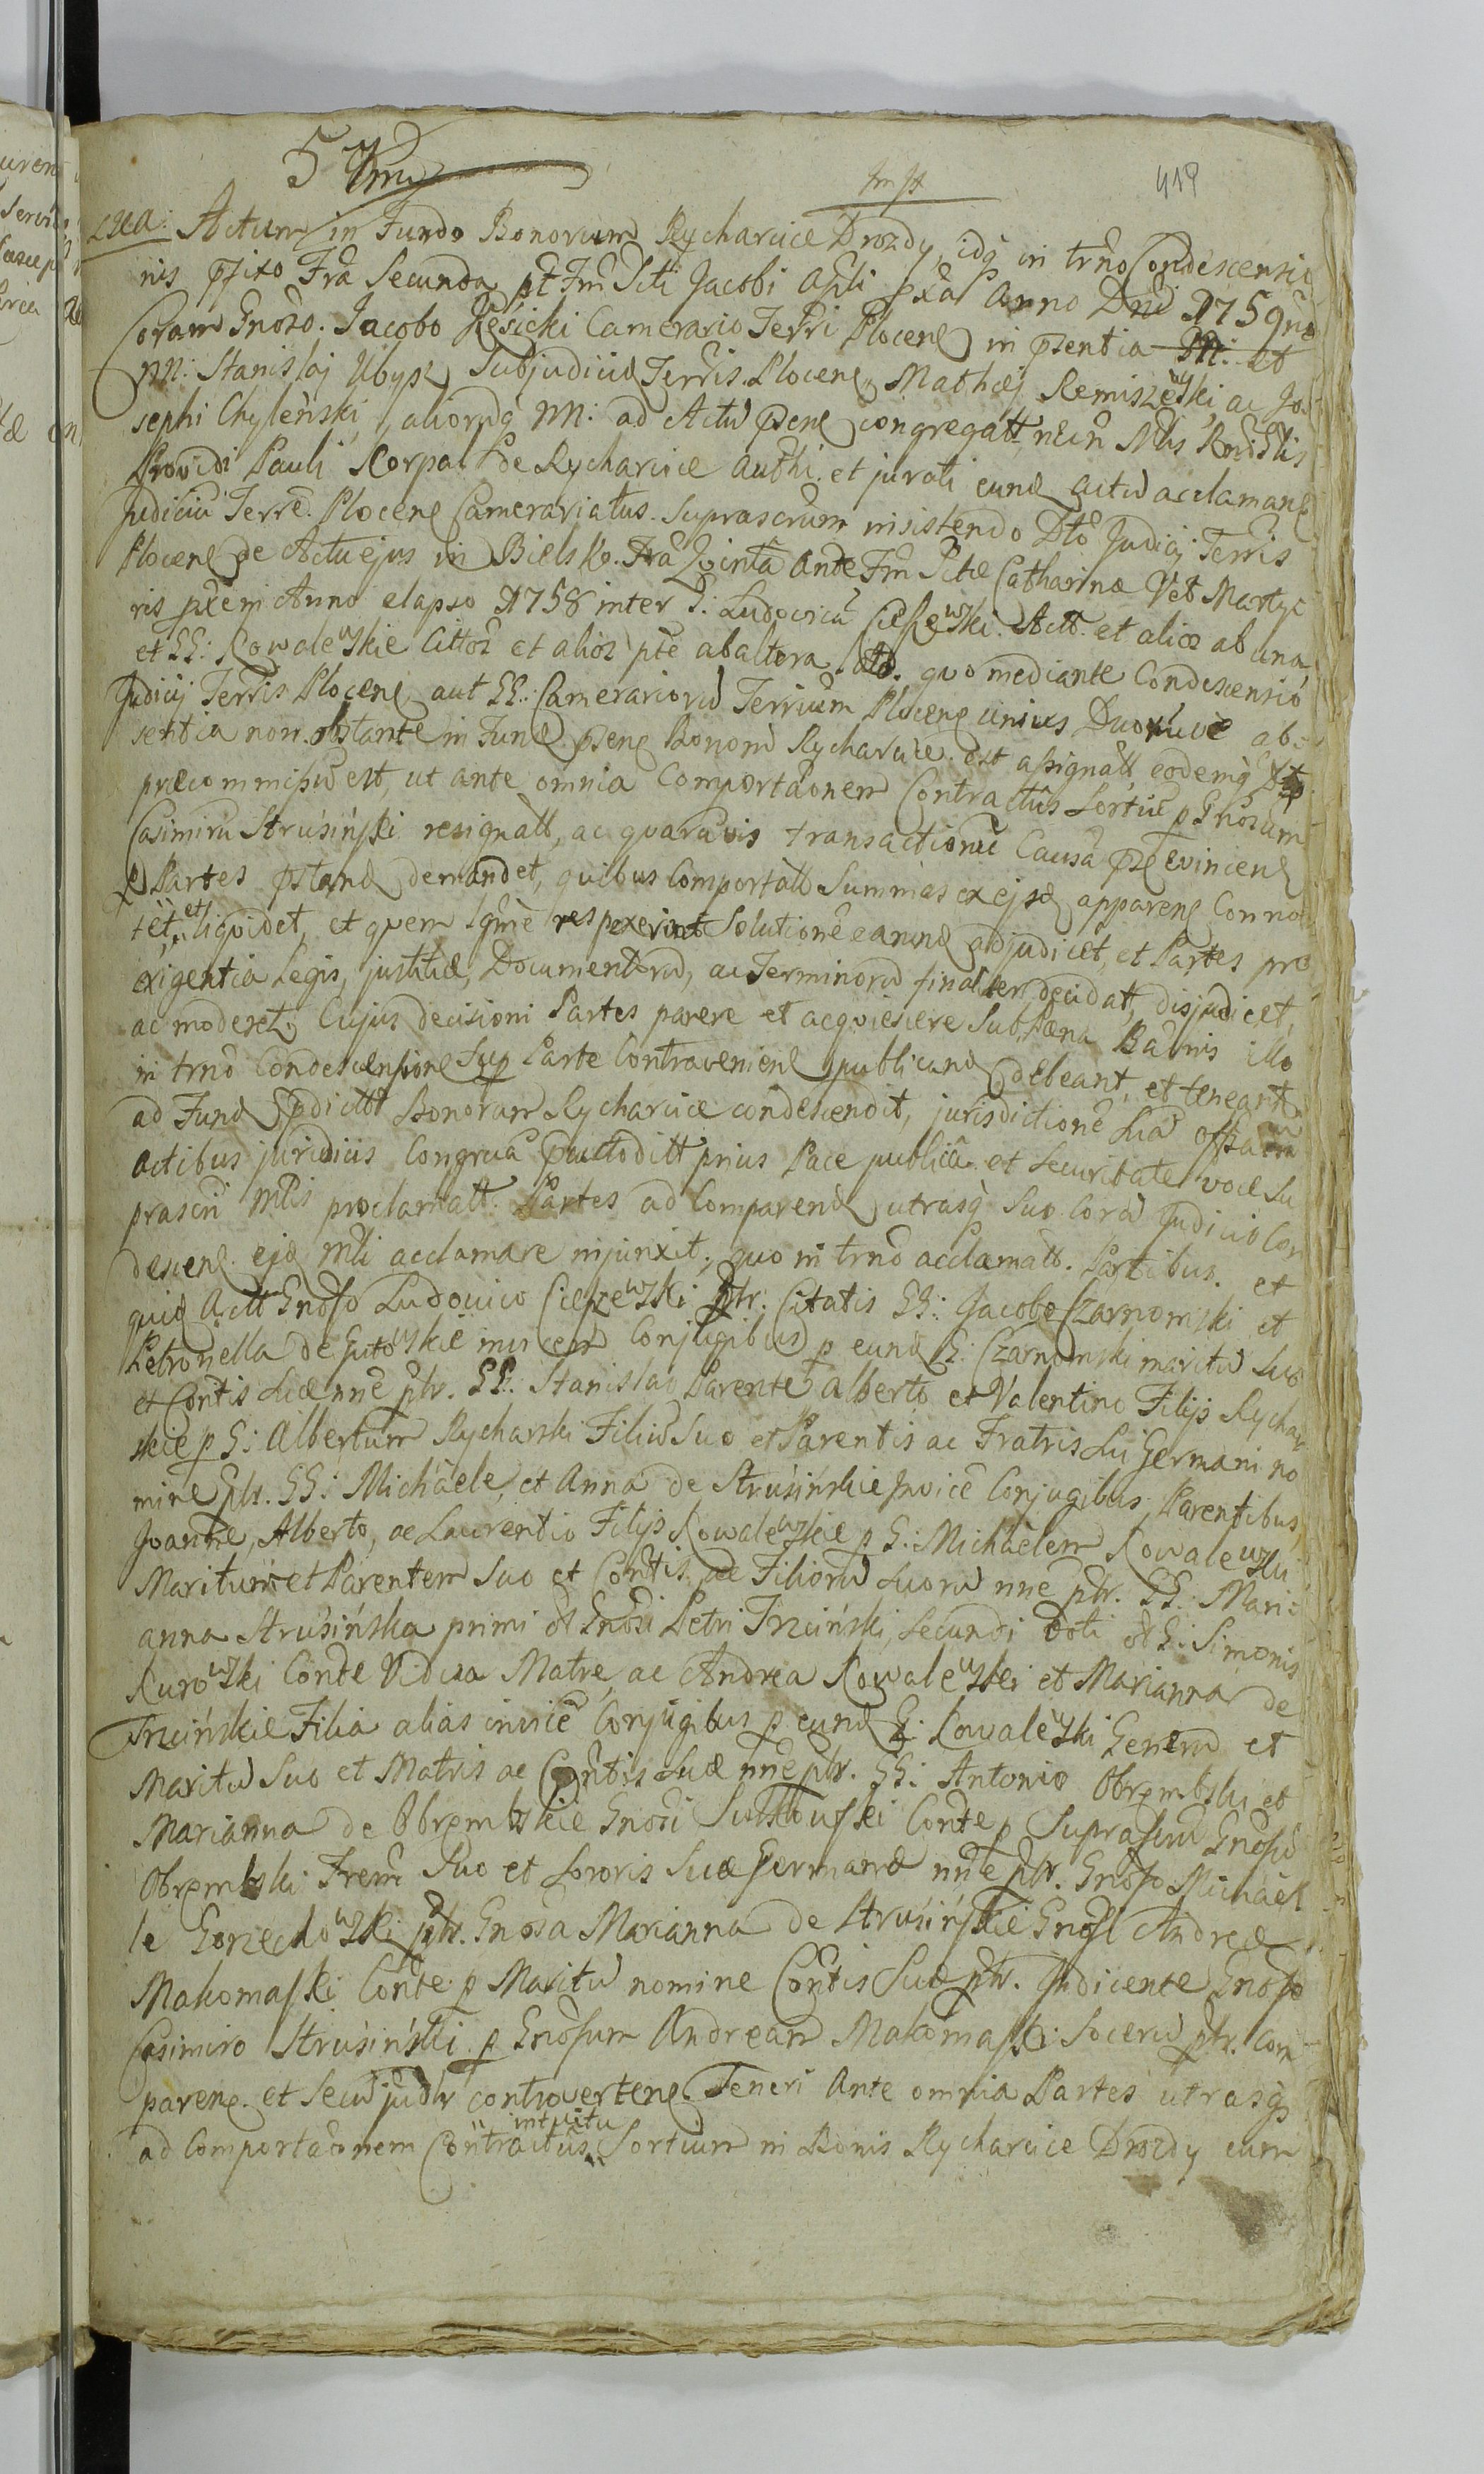 419
Actum in Fundo Bonorum Rycharcice Drozdy, idq in trno Condescensio
nis pfixo Fra Secunda pt Fm Scti Jacobi Apli pxa Anno Dni 1759no
Coram Gnoso. Jacobo Camerario Terri Plocen in psentia
NN: Stanislaj Ubysz Subjudicis Terris. Plocen, Mathej Remiszewski, ac Jo
sephi Chyleński, aliorumq NN: ad Actu psene congregatt, nein Mlis
Providi Pauli Korpal de Rycharcice authi. et jurati eund actu acclamane
Judiciu Terre. Plocene Camerariatus. Suprascrum insistendo Dto Judicij Terris
Plocene de Actu ejus in Bielsk. Fra Qvinta Ante Fm Sctae Catharinae Vet Martyr
ris pxem Anno elapso 1758 inter G: Ludovicu Act. et alios ab una,
et GG: Kowalewskie Cittos et alios pte ab altera. quo mediante Condescensio
Judicij Terris Plocene, aut GG: Camerarioru Terrium Plocene unius Duoruve ab
sentia non obstante in Fund psene Bonoru Rycharcice est assignatt eodemq
praecommissu est, ut ante omnia Comportaonem Contractus Sortiu p Gnosum
Casimiru Strusiński resignatt, ac quaruvis transactionu Causa pse evincene
p Partes pstand demandet, quibus Comportatt Summas ex ejsd apparene Conno
tet, et liqvidet, et quem lqme respexerint Solutione earund adjudicet, et Partes pro
exigentia Legis, justitiae, Documentoru, ac Terminoru finaliter decidat, disjudicet,
ac moderet; Cujus decisioni Partes parere et acqviescere Sub Paena Banis illo
in trno Condescensione Sup Parte Contraveniene publicand debeant, et teneant.
ad Fund Spdictt Bonorum Rycharcice condescendit, jurisdictione Sua
actibus juridicis Congrua fundatt. prius Pace publica et Securitate voce Su
prascri Mlis proclamatt. Partes ad Comparend utrasq Suo Cora Judicio Con
descene ejd Mli acclamare injunxit; quo in trno acclamatt. Partibus. et
quid Actt Gnoso Ludovico ptr. Citatis GG: Jacobo Czarnomski et
Petronella de Gutowskie invicem Conjugibus p eund G: Czarnomski maritu Suo
et Contis Suae nne ptr. GG: Stanislao Parente Alberto et Valentino Filijs Rychar
skie p G: Albertum Rycharski Filiu Suo et Parentis ac Fratris Sui Germani no
mine ptr. GG: Michaele, et Anna de Strusińskie invice Conjugibus Parentibus,
Joanne, Alberto, ac Laurentio Filijs Kowalewskie p G: Michaelem Kowalewski
Maritum et Parentem Suo et Contis ac Filioru Suoru nne ptr. GG: Mari
anna Strusińska primi ol Gnosi Petri Trzciński, Secundi Voti ol G: Simonis
Kurowski Conte Vidua Matre, ac Andrea Kowalewski et Marianna de
Trzcińskie Filia alias invice Conjugibus p eund G: Kowalewski Generu et
Maritu Suo et Matris ac Contis Suae nne ptr. GG: Antonio Obrembski et
Marianna de Obrembskie Gnosi Conte p Suprascru Gnosu
Obrembski Frem Suo et Sororis Suae Germanae nne ptr. Gnoso Michae
le Gorzechowski ptr. Gnosa Marianna de Strusińskie Gnosi Andreae
Makomaski Conte p Maritu nomine Contis Suae ptr. Judicente Gnoso
Casimiro Strusiński. p Gnosum Andream Makomaski Soceru ptr. Com
parene et Secu judlr controvertene. Teneri Ante omnia Partes utrasq
ad Comportaonem Contractus intuitu Sortium in Bonis Rycharcice Drozdy cum